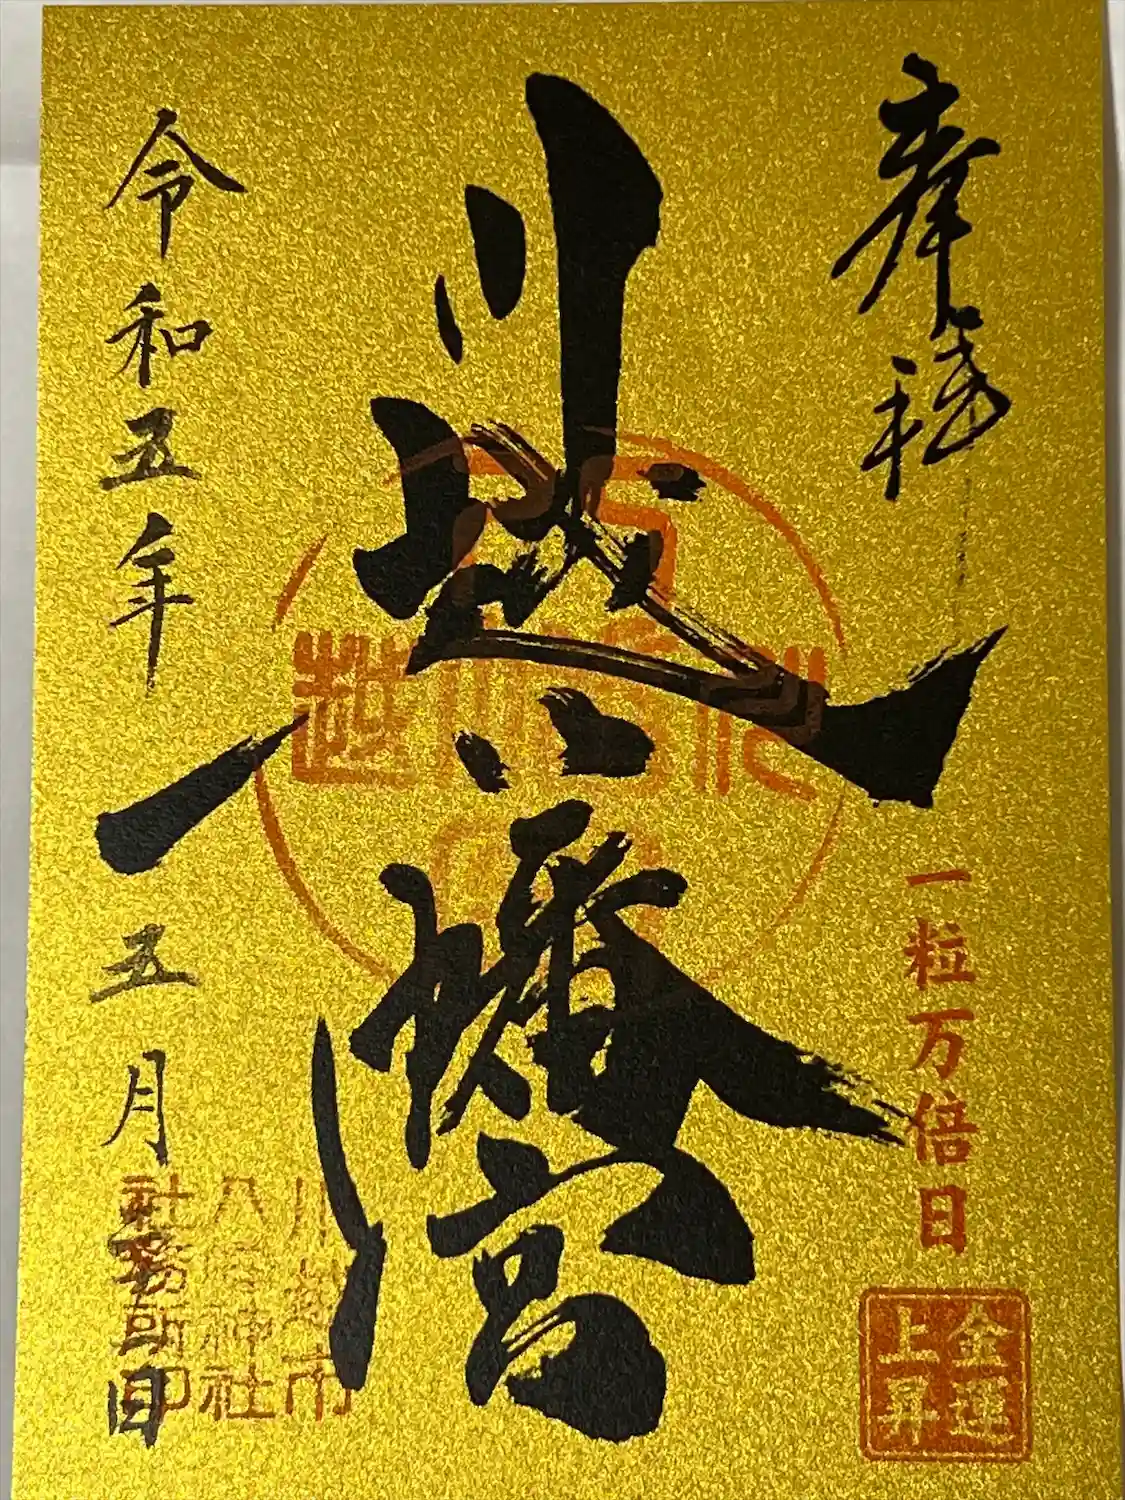 奉拝
一粒万倍日
金運
上昇
川越八幡宮
令和五年五月 日
川越市
八幡神社
社務所印